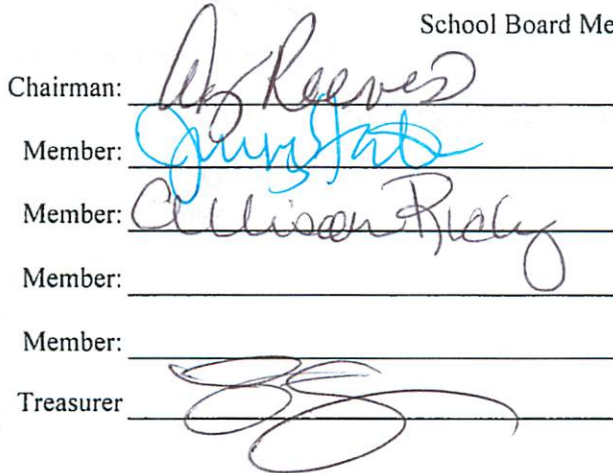 School Board Me
Chairman: Reeves
Member:
Member: Allison
Member:
Member:
Treasurer